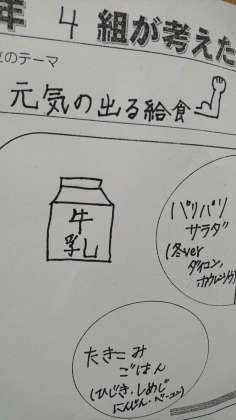 年 4 組が考えた
のテーマ
元気の出る給食
牛
乳
パリパリ
サラダ
(冬ver
ダイコン,
ホウレンソウ)
たきこみ
ごはん
(ひじき・しめじ
にんじん・ベーコン)